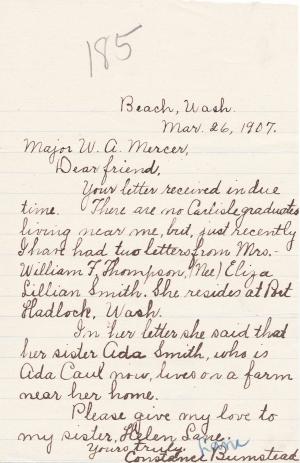 185
Beach, Wash.
Mar. 26, 1907.
Major W. A. Mercer,
Dear friend,
Your letter received in due
time. There are no Carlisle graduates
living near me, but, just recently
I have had two letters from Mrs.
William F. Thompson, (Nee) Eliza
Lillian Smith. She resides at Port
Hadlock, Wash.
In her letter she said that
her sister Ada Smith, who is
Ada Caul now, lives on a farm
near her home.
Please give my love to
my sister, Helen Lane.
Yours truly,
Lane
Constance Bumstead